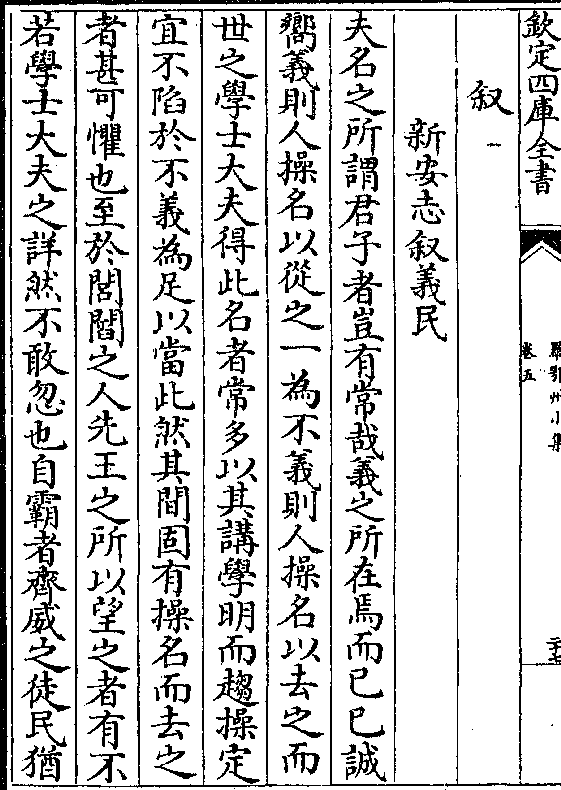 欽定四庫全書
羅鄂州小集
卷五
二十七
叙一
新安志叙義民
夫名之所謂君子者豈有常哉義之所在焉而已已誠
嚮義則人操名以從之一為不義則人操名以去之而
世之學士大夫得此名者常多以其講學明而趨操定
宜不陷於不義為足以當此然其間固有操名而去之
者甚可懼也至於閭閻之人先王之所以望之者有不
若學士大夫之詳然不敢忽也自霸者齊威之徒民猶